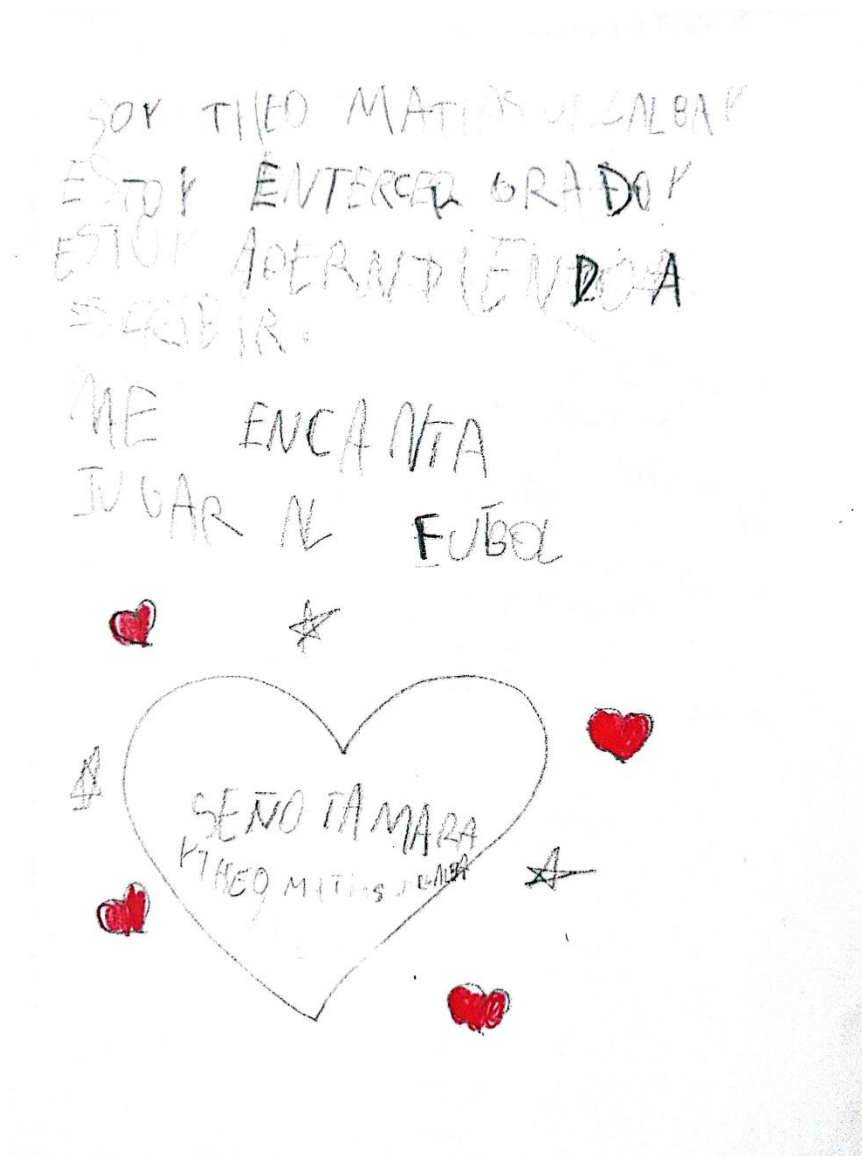 SOY THEO MATIAS Y
ESTOY ENTERCER GRADO Y
ESTOY APERNDIENDO A
ESCRIBIR.
ME ENCANTA
JUGAR AL FUBOL
SEÑO TAMARA
Y THEO MATIAS